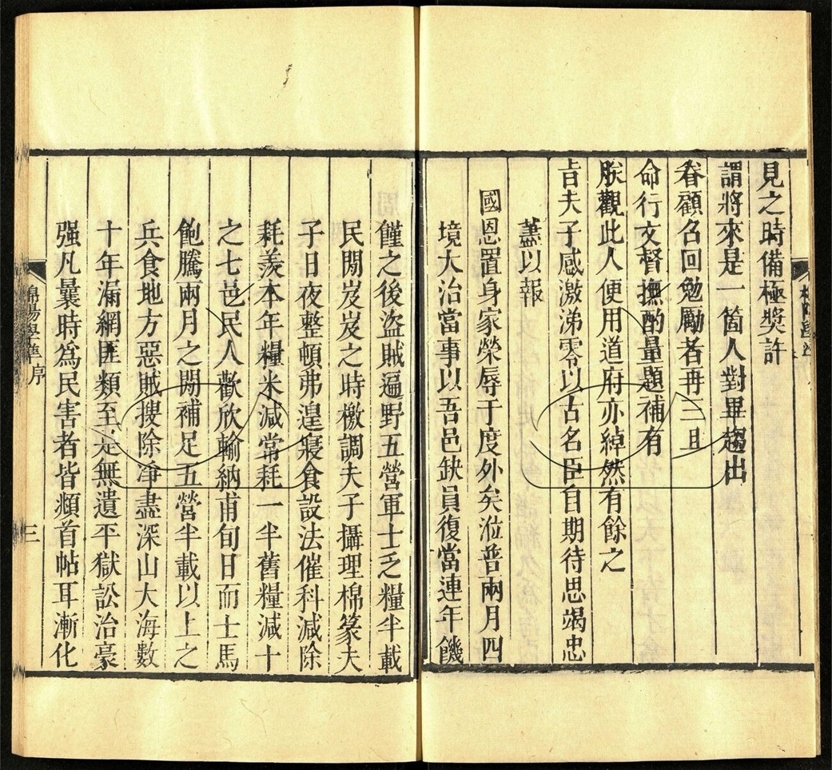 見之時備極奬許
謂將來是一箇人對畢趨出
眷顧名回勉勵者再三且
命行文督撫酌量題補有
朕觀此人便用道府亦綽然有餘之
旨夫子感激涕零以古名臣自期待思竭忠
藎以報
國恩置身家榮辱于度外矣涖普兩月四
境大治當事以吾邑缺員復當連年饑
饉之後盜賊遍野五營軍士乏糧半載
民閒岌岌之時檄調夫子攝理棉篆夫
子日夜整頓弗遑寢食設法催科減除
耗羨本年糧米減常耗一半舊糧減十
之七邑民人歡欣輸納甫旬日而士馬
飽騰兩月之閒補足五營半載以上之
兵食地方惡賊搜除凈盡深山大海數
十年漏網匪類至是無遺平獄訟治豪
强凡曩時爲民害者皆頫首帖耳漸化
棉陽學準 序
三